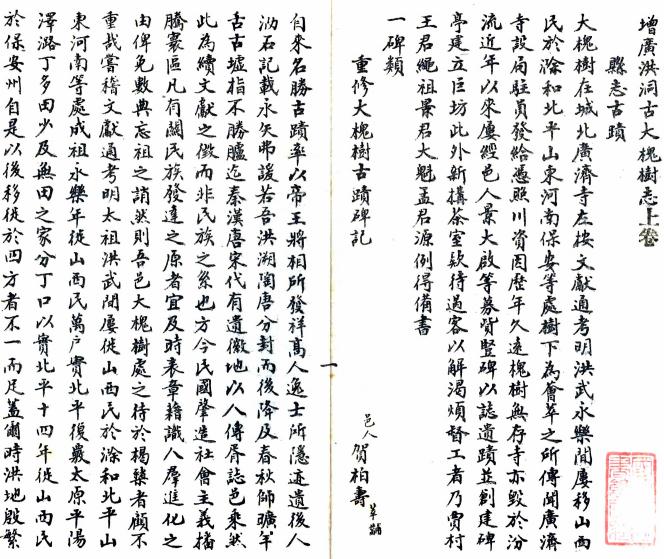 增廣洪洞古大槐樹志上卷
縣志古蹟
大槐樹在城北廣濟寺左按文獻通考明洪武永樂間屢移山西
民於滁和北平山東河南保安等處樹下為薈萃之所傳聞廣濟
寺設局駐員發給憑照川資因歷年久遠槐樹無存寺亦毀於汾
流近年以來屢經邑人景大啟等募貲豎碑以誌遺蹟並創建碑
亭建立巨坊此外新搆茶室欵待過客以解渴煩督工者乃賈村
王君繩祖景君大魁孟君源例得備書
一碑類
重修大槐樹古蹟碑記
邑人 賀柏壽 萃黼
自來名勝古蹟率以帝王將相所發祥高人逸士所隱迹遺後人
泐石記載永矢弗諼若吾洪溯陶唐分封而後降及春秋師曠羊
舌古墟指不勝臚迄秦漢唐宋代有遺徽地以人傳胥誌邑乘然
此為續文獻之徵而非民族之系也方今民國肇造社會主義播
騰寰區凡有關民族發達之原者宜及時表章藉識人羣進化之
由俾免數典忘祖之誚然則吾邑大槐樹處之待於楬櫫者顧不
重哉嘗稽文獻通考明太祖洪武間屢徙山西民於滁和北平山
東河南等處成祖永樂年徙山西民萬户實北平復覈太原平陽
澤潞丁多田少及無田之家分丁口以實北平十四年徙山西民
於保安州自是以後移徙於四方者不一而足蓋爾時洪地殷繁
一